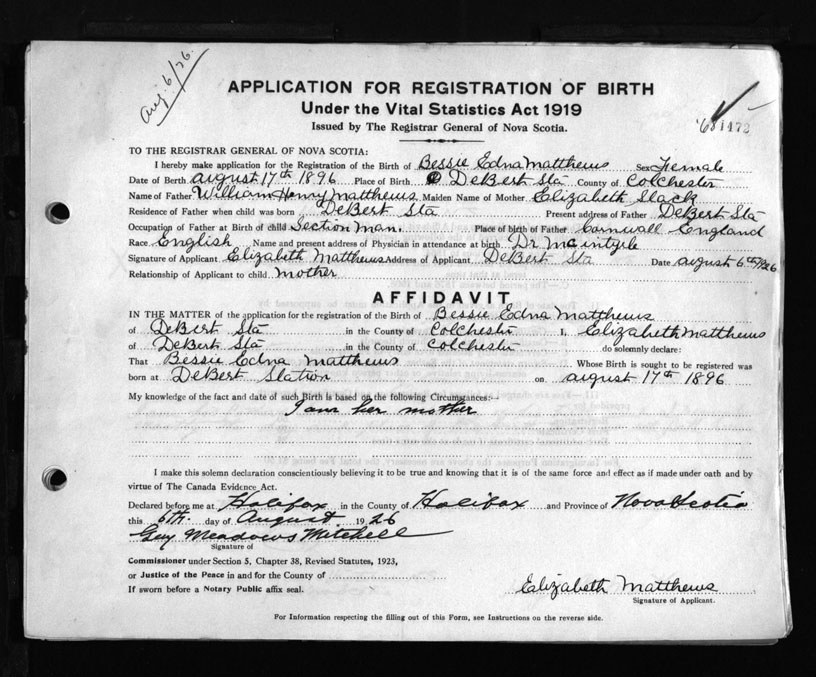 Aug. 6/26.
APPLICATION FOR REGISTRATION OF BIRTH
Under the Vital Statistics Act 1919
Issued by The Registrar General of Nova Scotia.
TO THE REGISTRAR GENERAL OF NOVA SCOTIA:
I hereby make application for the Registration of the Birth of Bessie Edna Matthews Sex Female
Date of Birth August 17th 1896 Place of Birth DeBert Sta County of Colchester
Name of Father William Henry Matthews Maiden Name of Mother Elizabeth Slack
Residence of Father when child was born DeBert Sta Present address of Father DeBert Sta
Occupation of Father at Birth of child Section Man. Place of birth of Father Cornwall England
Race English Name and present address of Physician in attendance at birth Dr McIntyre
Signature of Applicant Elizabeth Matthews Address of Applicant DeBert Sta Date August 6th/26
Relationship of Applicant to child mother
AFFIDAVIT
IN THE MATTER of the application for the registration of the Birth of Bessie Edna Matthews
of DeBert Sta in the County of Colchester I, Elizabeth Matthews
of DeBert Sta in the County of Colchester do solemnly declare:
That Bessie Edna Matthews Whose Birth is sought to be registered was
born at DeBert Station on August 17th 1896
My knowledge of the fact and date of such Birth is based on the following Circumstances:—
I am her mother
I make this solemn declaration conscientiously believing it to be true and knowing that it is of the same force and effect as if made under oath and by
virtue of The Canada Evidence Act.
Declared before me at Halifax in the County of Halifax and Province of Nova Scotia
this 6th. day of August 1926
Guy Meadows Mitchell
Signature of
Commissioner under Section 5, Chapter 38, Revised Statutes, 1923,
or Justice of the Peace in and for the County of
If sworn before a Notary Public affix seal.
Elizabeth Matthews
Signature of Applicant.
For Information respecting the filling out of this Form, see Instructions on the reverse side.